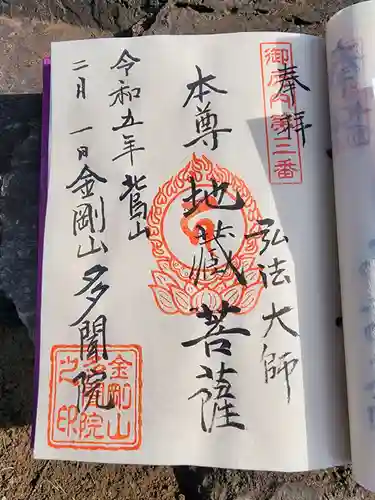 奉拝
御府内第三番
弘法大師
本尊 地蔵菩薩
令和五年 北烏山
二月 一日 金剛山 多聞院
金剛山
多聞院
之印